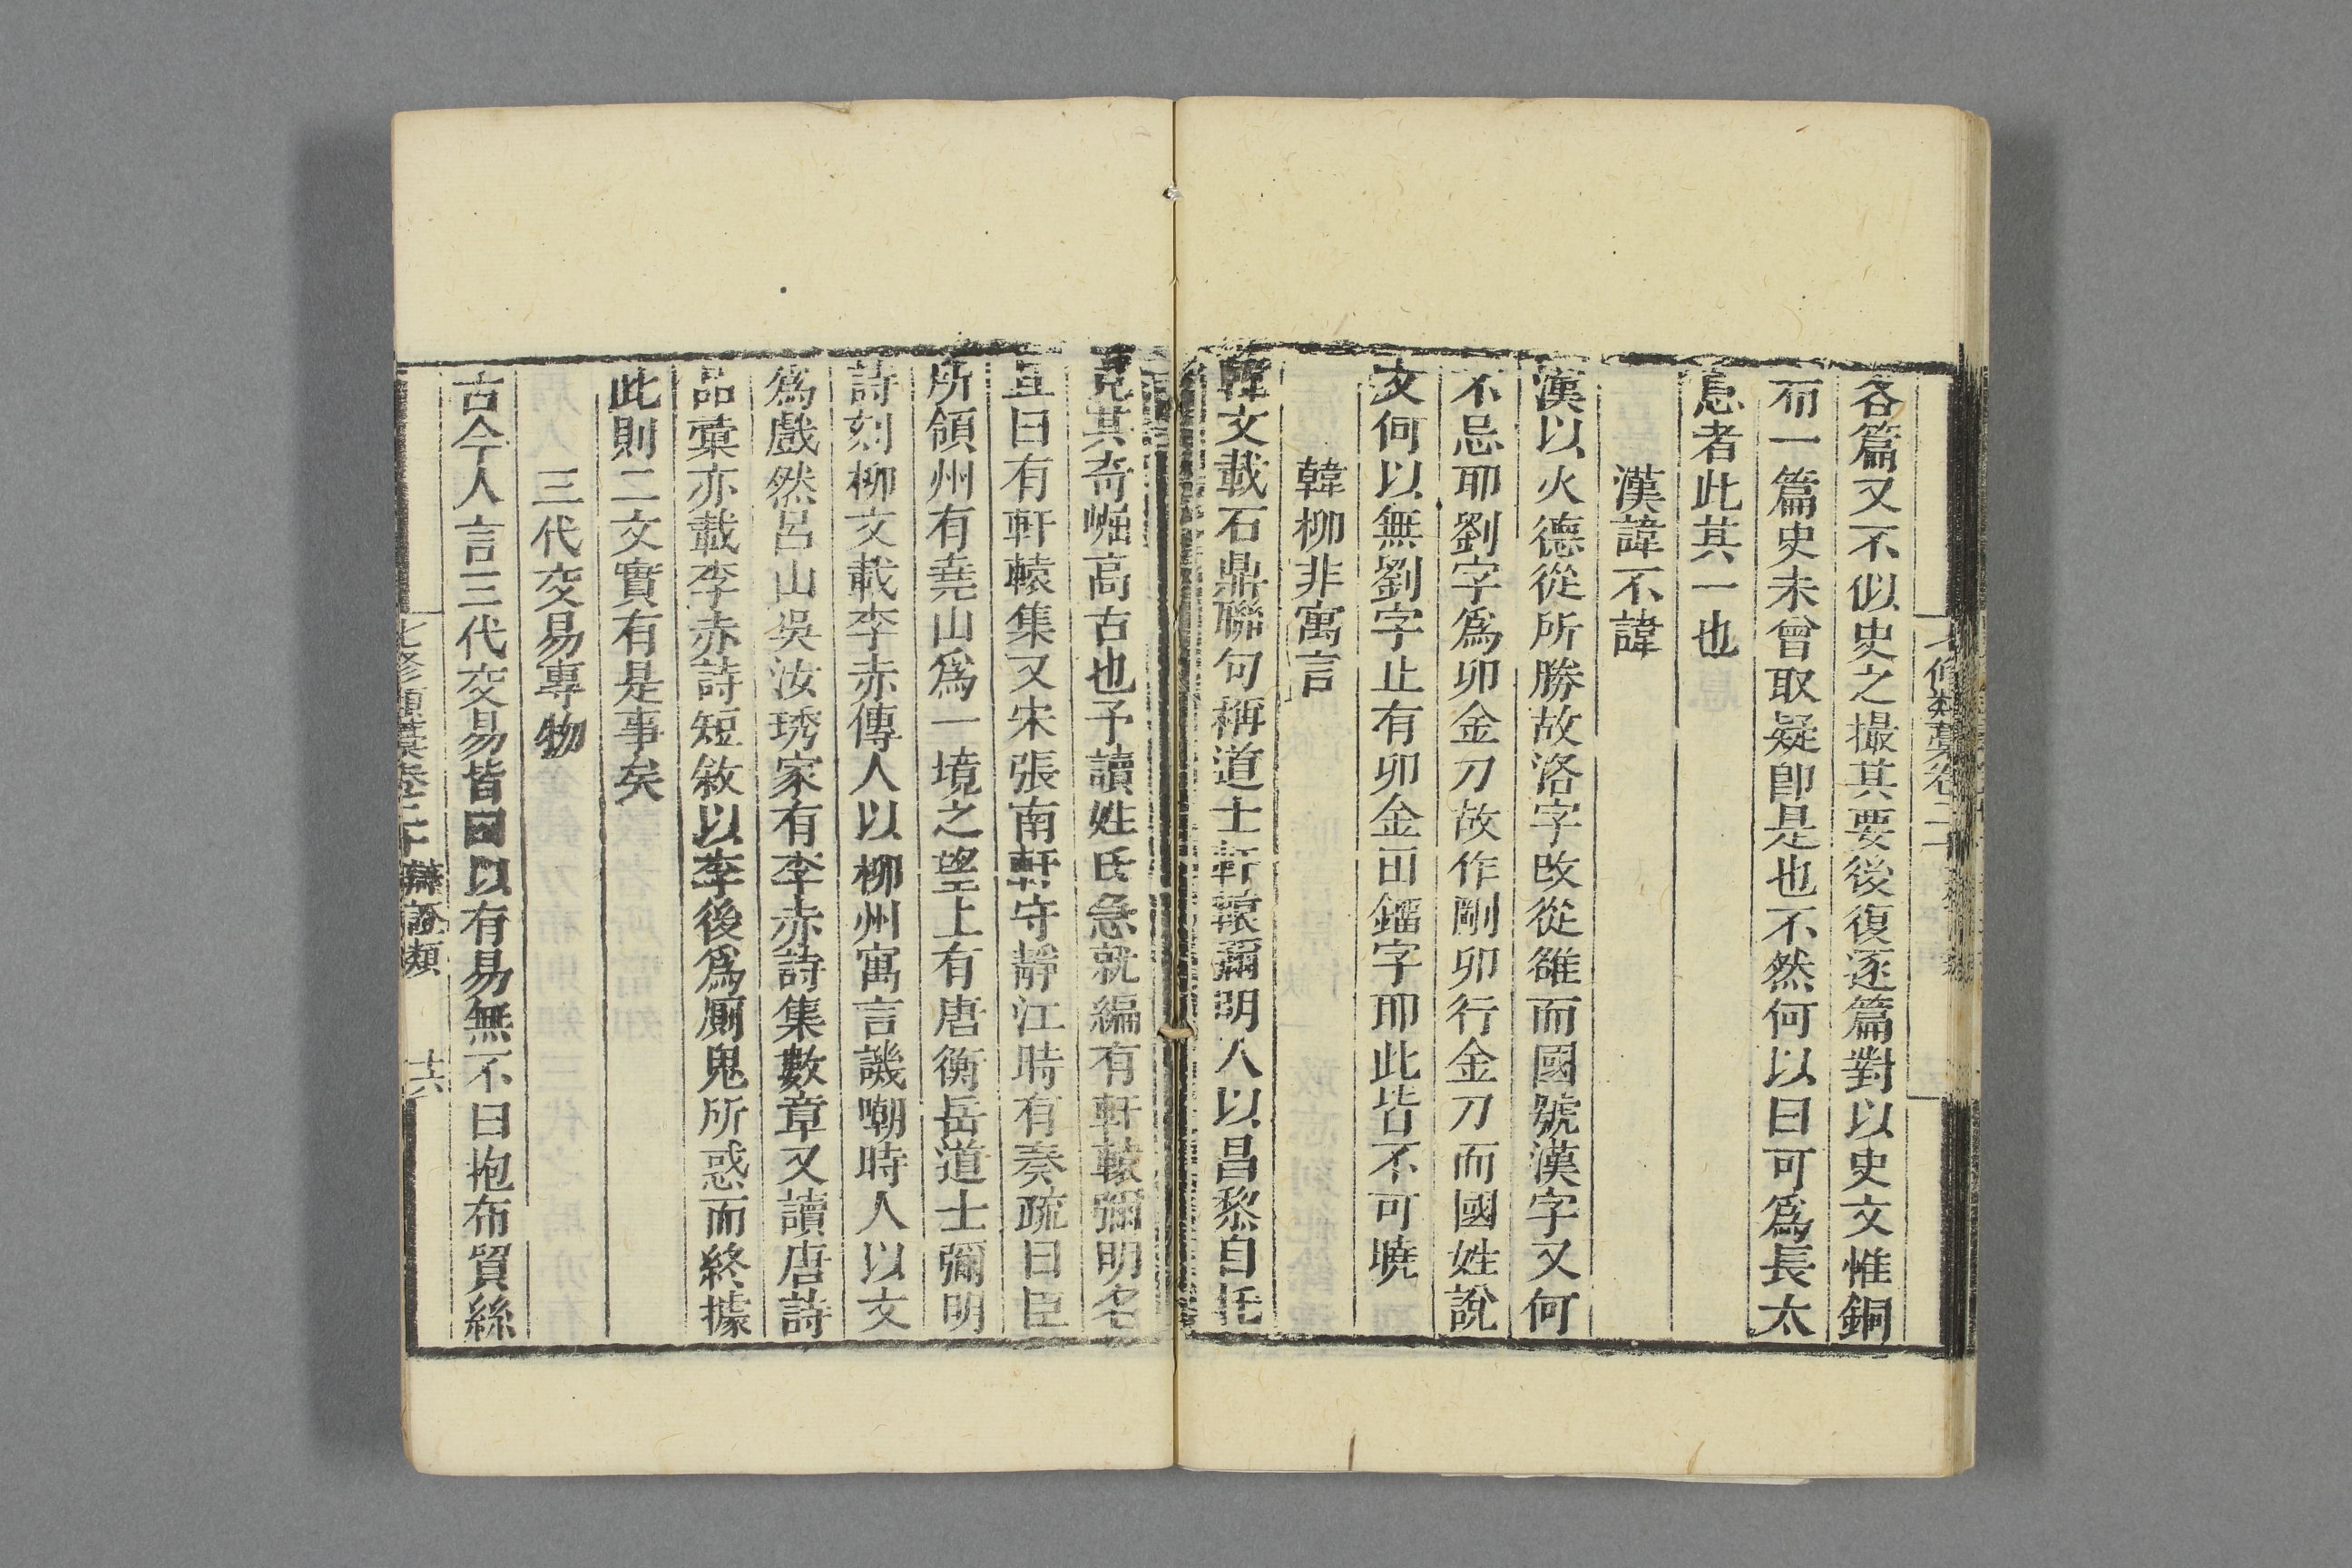 七修類藁卷二十
各篇又不似史之撮其要後復逐篇對以史文惟銅
而一篇史未曾取疑即是也不然何以曰可爲長太
息者此其一也
漢諱不諱
漢以火德從所勝故洛字改從雒而國號漢字又何
不忌耶劉字爲卯金刀故作剛卯行金刀而國姓說
文何以無劉字止有卯金田鎦字耶此皆不可曉
韓柳非寓言
韓文載石鼎聯句稱道士軒轅彌明人以昌黎自托
見其奇崛高古也予讀姓氏急就編有軒轅彌明名
且曰有軒轅集又宋張南軒守靜江時有奏疏曰臣
所領州有堯山爲一境之望上有唐衡岳道士彌明
詩刻柳文載李赤傳人以柳州寓言譏嘲時人以文
爲戲然呂山吳汝琇家有李赤詩集數章又讀唐詩
品彙亦載李赤詩短敘以李後爲厠鬼所惑而終據
此則二文實有是事矣
三代交易專物
古今人言三代交易皆曰以有易無不曰抱布貿絲
七修類藁卷二十 辯證類 十六